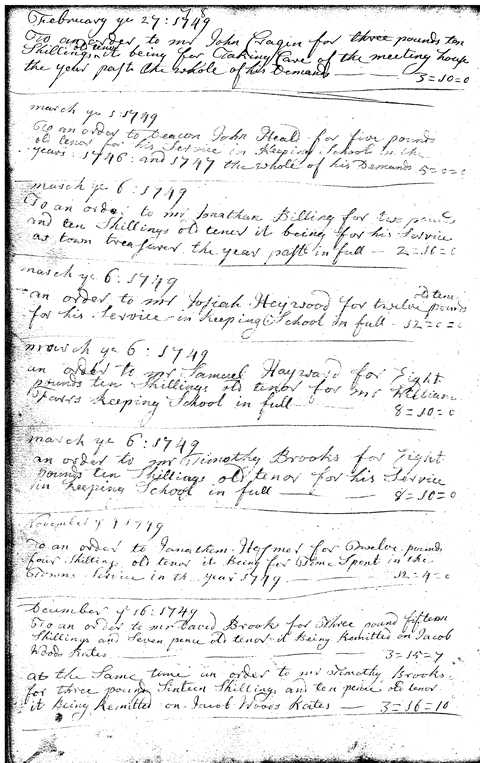 February ye 27: 1749
To an order to mr John Cragin for three pounds ten
Shillings old tenor it being for Taking Care of the meeting house
the year past the whole of his Demands — 3=10=0
march ye 1 1749
To an order to Deacon John Heald for five pounds
old tenor for his Service in Keeping School in the
years 1746: and 1747 the whole of his Demands 5=0=0
march ye 6: 1749
To an order to mr Jonathan Billing for two pounds
and ten Shillings old tenor it being for his Service
as town treasurer the year past in full — 2=10=0
march ye 6: 1749
an order to mr Josiah Heywood for twelve pounds old tenor
for his Service in Keeping School in full 12=0=0
march ye 6: 1749
an order to mr Samuel Hayward for Eight
pounds ten Shillings old tenor for mr William
Keeping School in full — 8=10=0
march ye 6: 1749
an order to mr Timothy Brooks for Eight
pounds ten Shillings old tenor for his Service
in Keeping School in full — 8=10=0
November ye 1749
To an order to Jonathan Hosmer for Twelve pounds
four Shilling old tenor it Being for Time Spent in the
Towns Service in the year 1749 12=4=0
December ye 16: 1749
To an order to mr David Brooks for three pound fifteen
Shillings and Seven pence old tenor it Being Remitted on Jacob
Woods Rates 3=15=7
at the Same time an order to mr Timothy Brooks
for three pounds Sixteen Shillings and ten pence old tenor
it Being Remitted on Jacob Woods Rates — 3=16=10